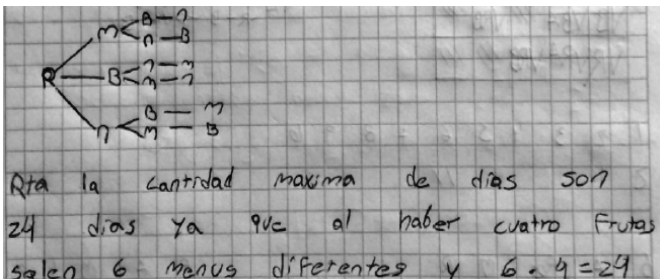 m B — n
n — B
R B n — m
m — n
n B — m
m — B
Rta la cantidad maxima de dias son
24 dias ya que al haber cuatro Frutas
salen 6 menus diferentes y 6 . 4 = 24